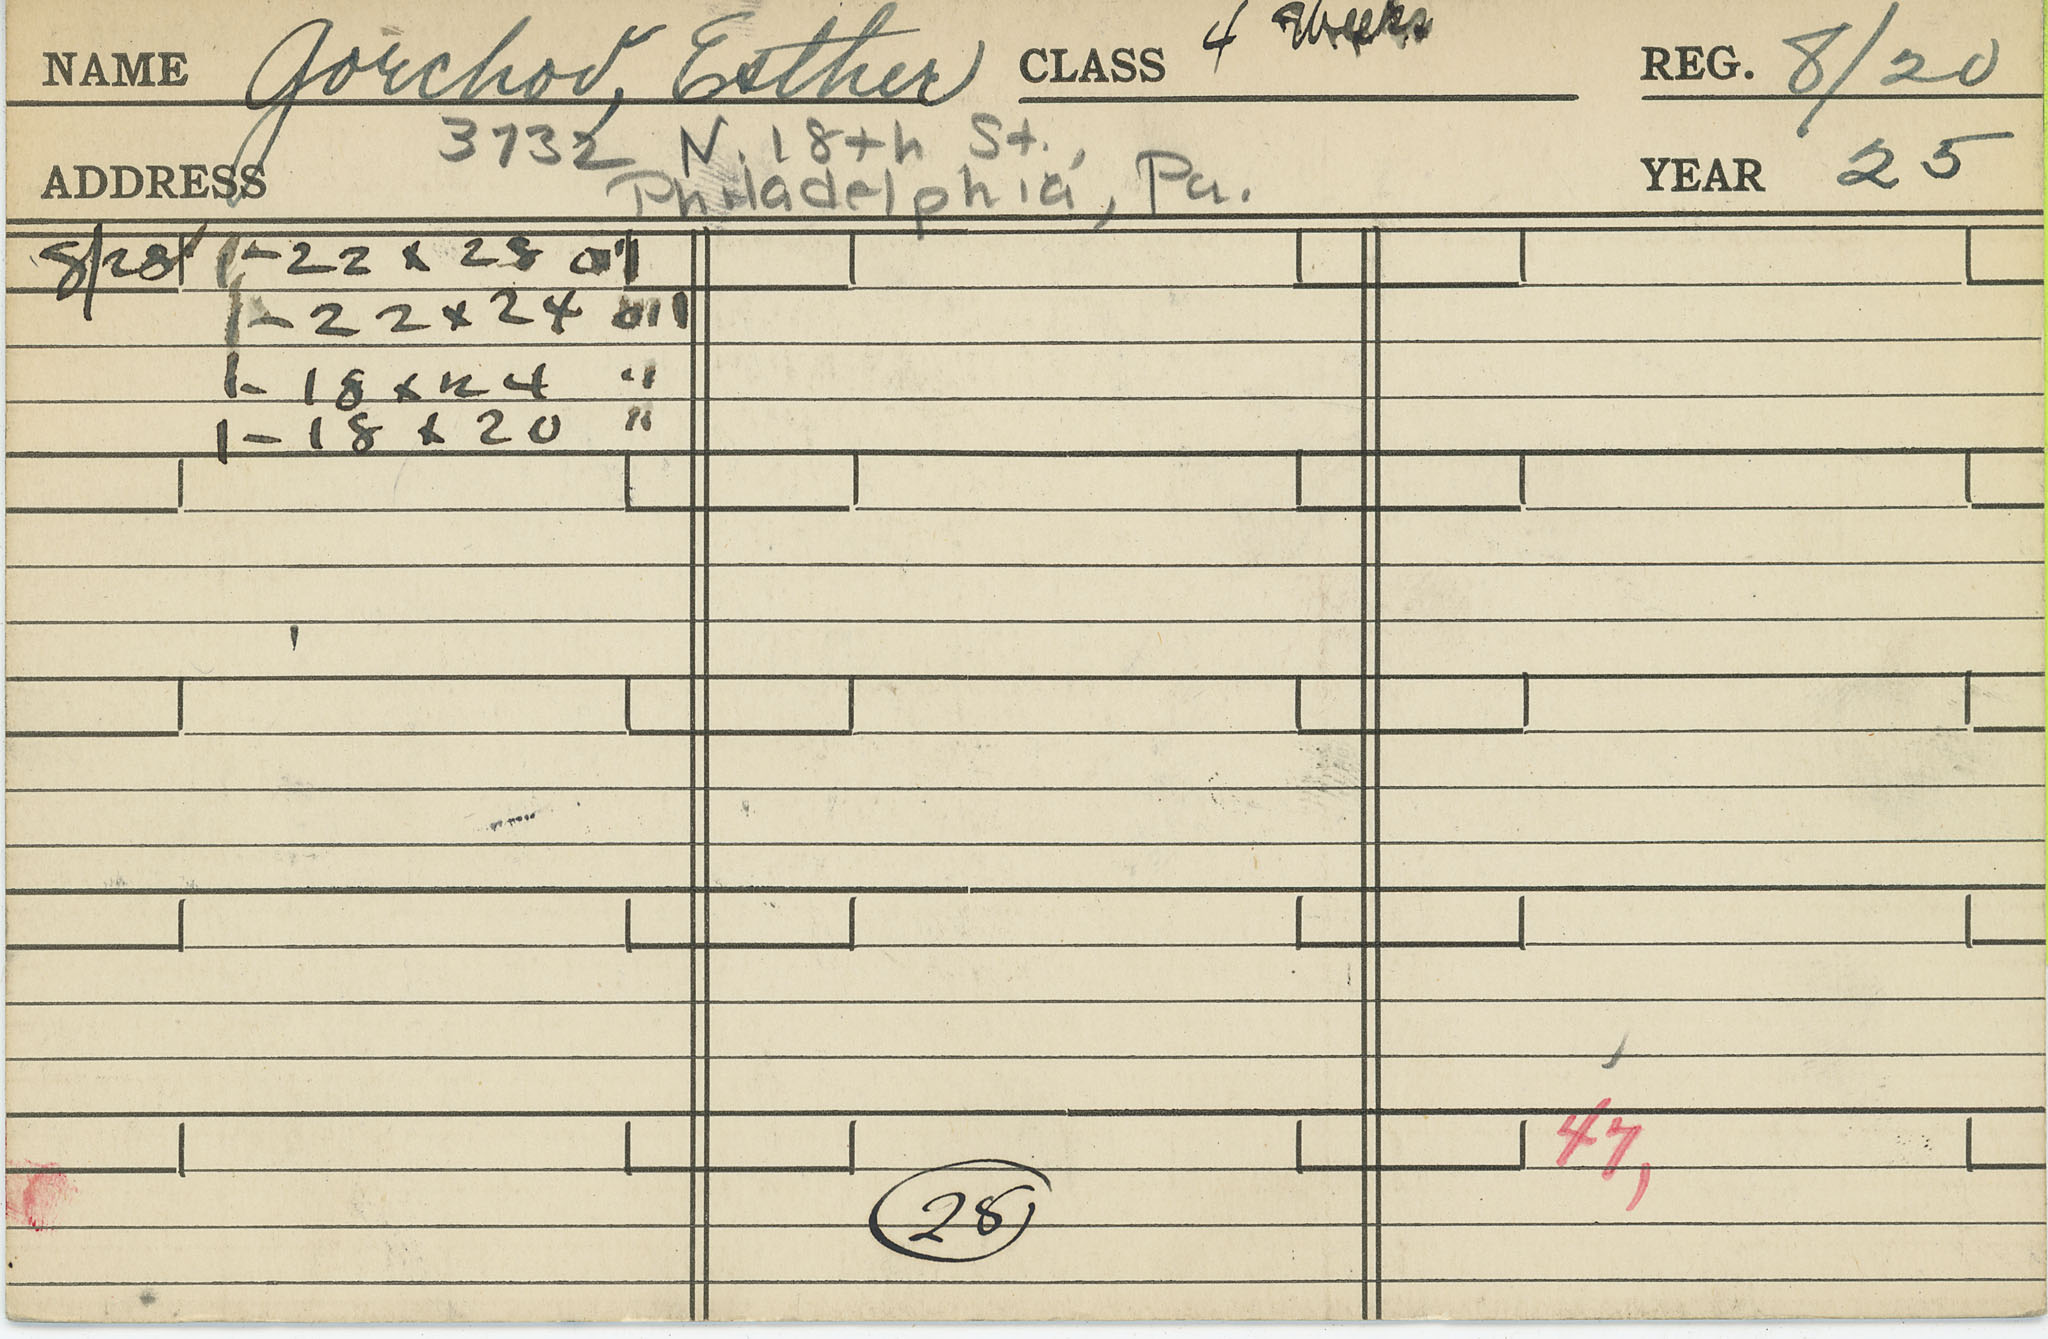 NAME Gorchov, Esther CLASS 4 Weeks REG. 8/20
3732 N. 18th St.,
ADDRESS Philadelphia, Pa. YEAR 25
8/28 1-22 x 28 oil
1-22 x 24 oil
1-18 x 24 "
1-18 x 20 "
47,
28